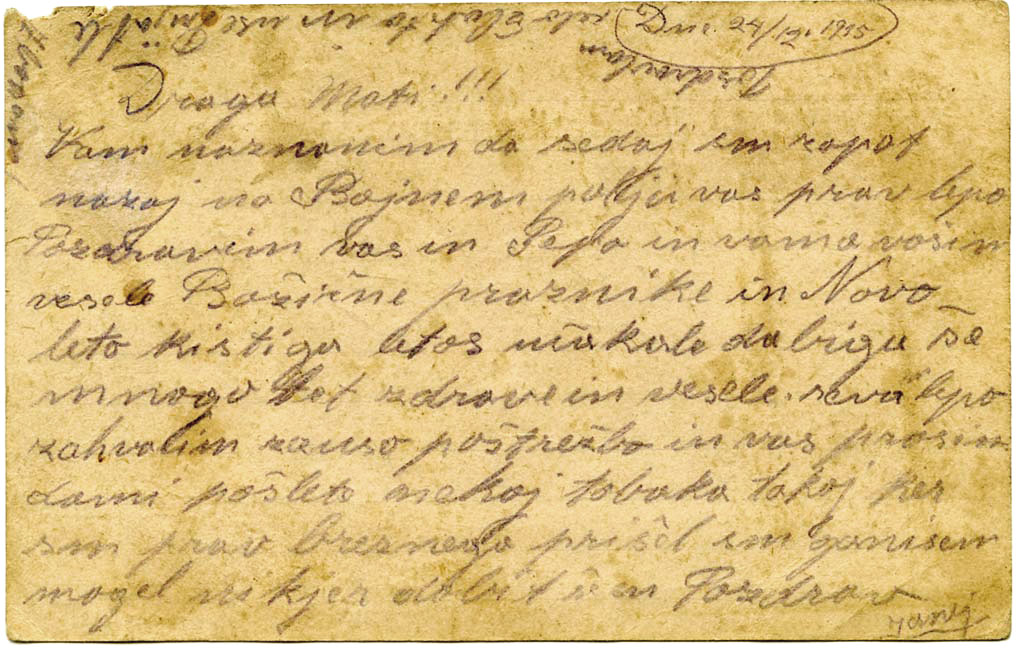 Dne. 24/12. 1915
Draga Mati!!!
Vam naznanim da sedaj sm zopet
nazaj na Bojnem polju vas prav lepo
Pozdravim vas in Pepo in vama vošim
vesele Božične praznike in Novo
leto ki stiga letos učakale da biga še
mnogo let zdrave in vesele. seva lepo
zahvalim zauso poštrežbo in vas prosim
dami pošleto nekoj tobaka takoj ker
sm prav brez nega prišel sm ga nisem
mogel nikjer dobit in Pozdrav
Pozdravlam
celo žlahto in use